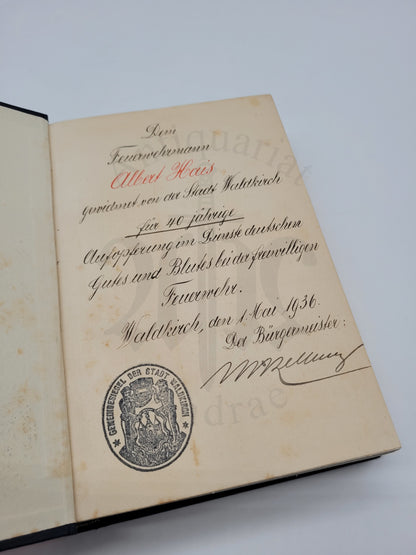 Dem
Feuerwehrmann
Albert Hais
gewidmet von der Stadt Waldkirch
für 40 jährige
Aufopferung im Dienste deutschen
Gutes und Blutes bei der freiwilligen
Feuerwehr.
Waldkirch, den 1. Mai 1936.
Der Bürgermeister:
* GEMEINDESIEGEL DER STADT WALDKIRCH